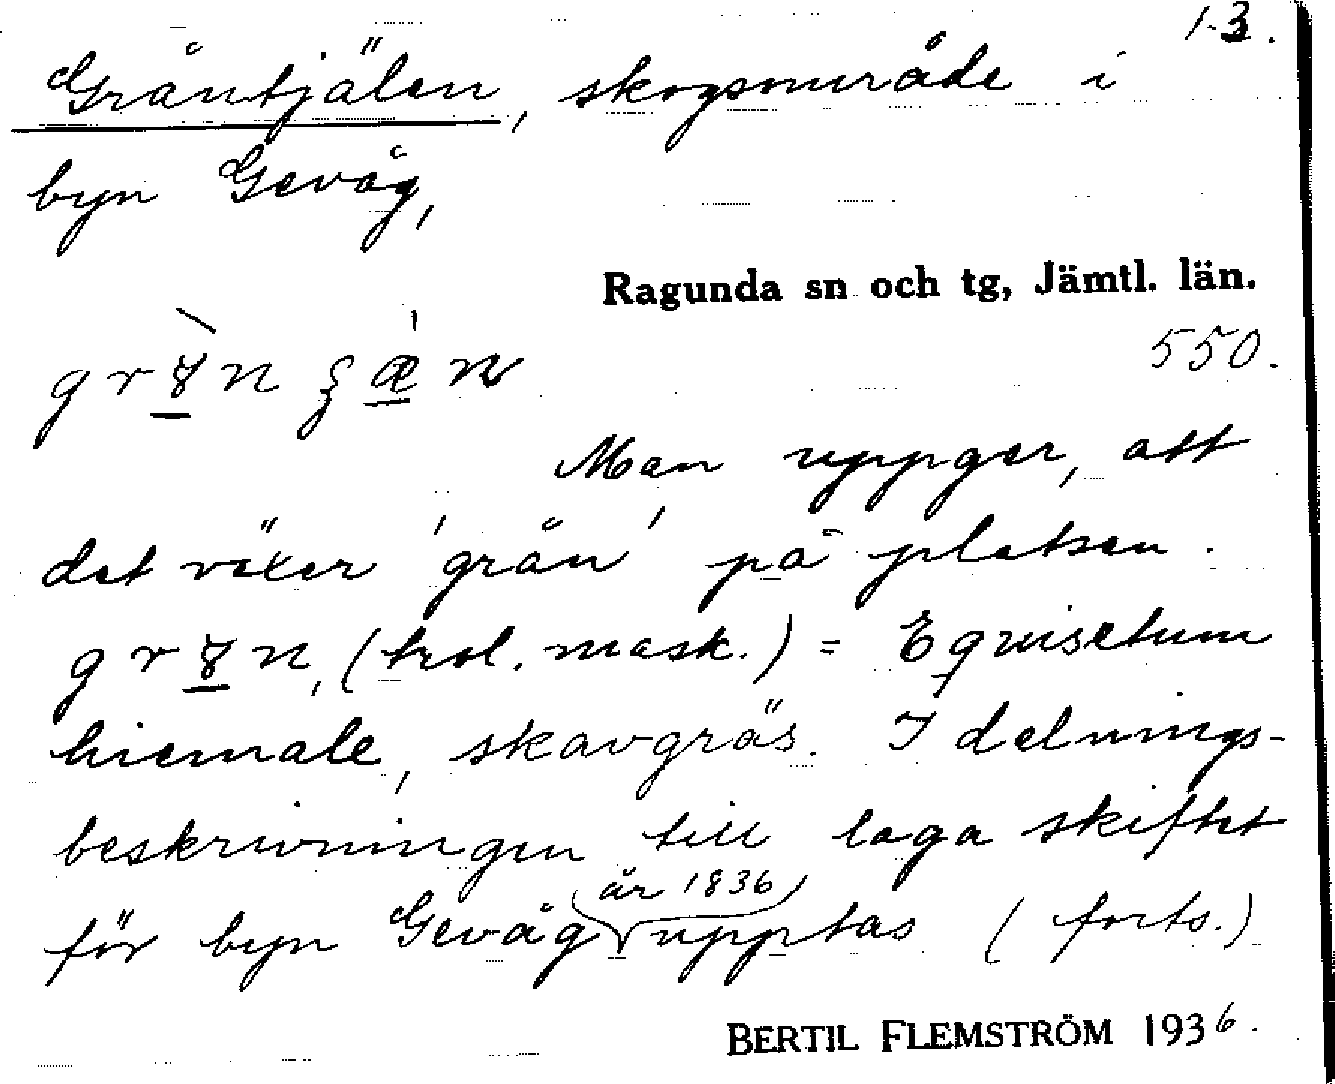 1-3.
Gråntjälen, skogsområde i
byn Gevåg,
Ragunda sn och tg, Jämtl. län.
550.
Man uppger, att
det växer 'grån' på platsen.
(trol. mask.) = Equisetum
hiemale, skavgräs. I delnings-
beskrivningen till laga skiftet
för byn Gevåg år 1836 upptas (forts.)
BERTIL FLEMSTRÖM 1936.